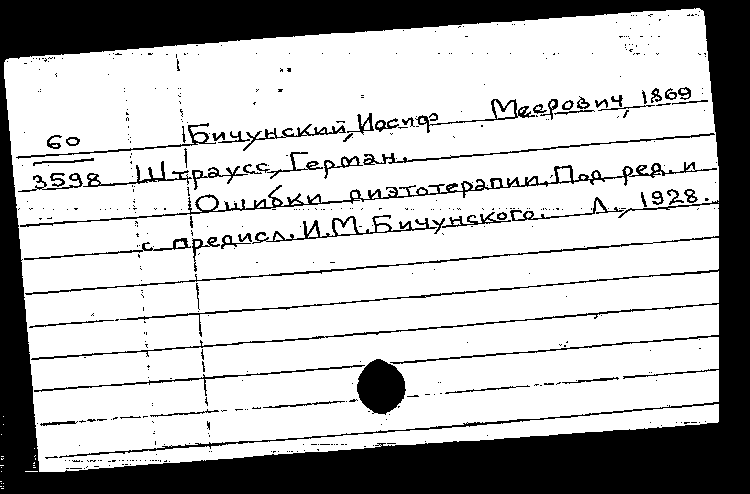 Бичунский, Иосиф Меерович, 1869
60
3598
Штраусс, Герман.
Ошибки диэтотерапии. Под ред. и
с предисл. И.М.Бичунского. Л., 1928.